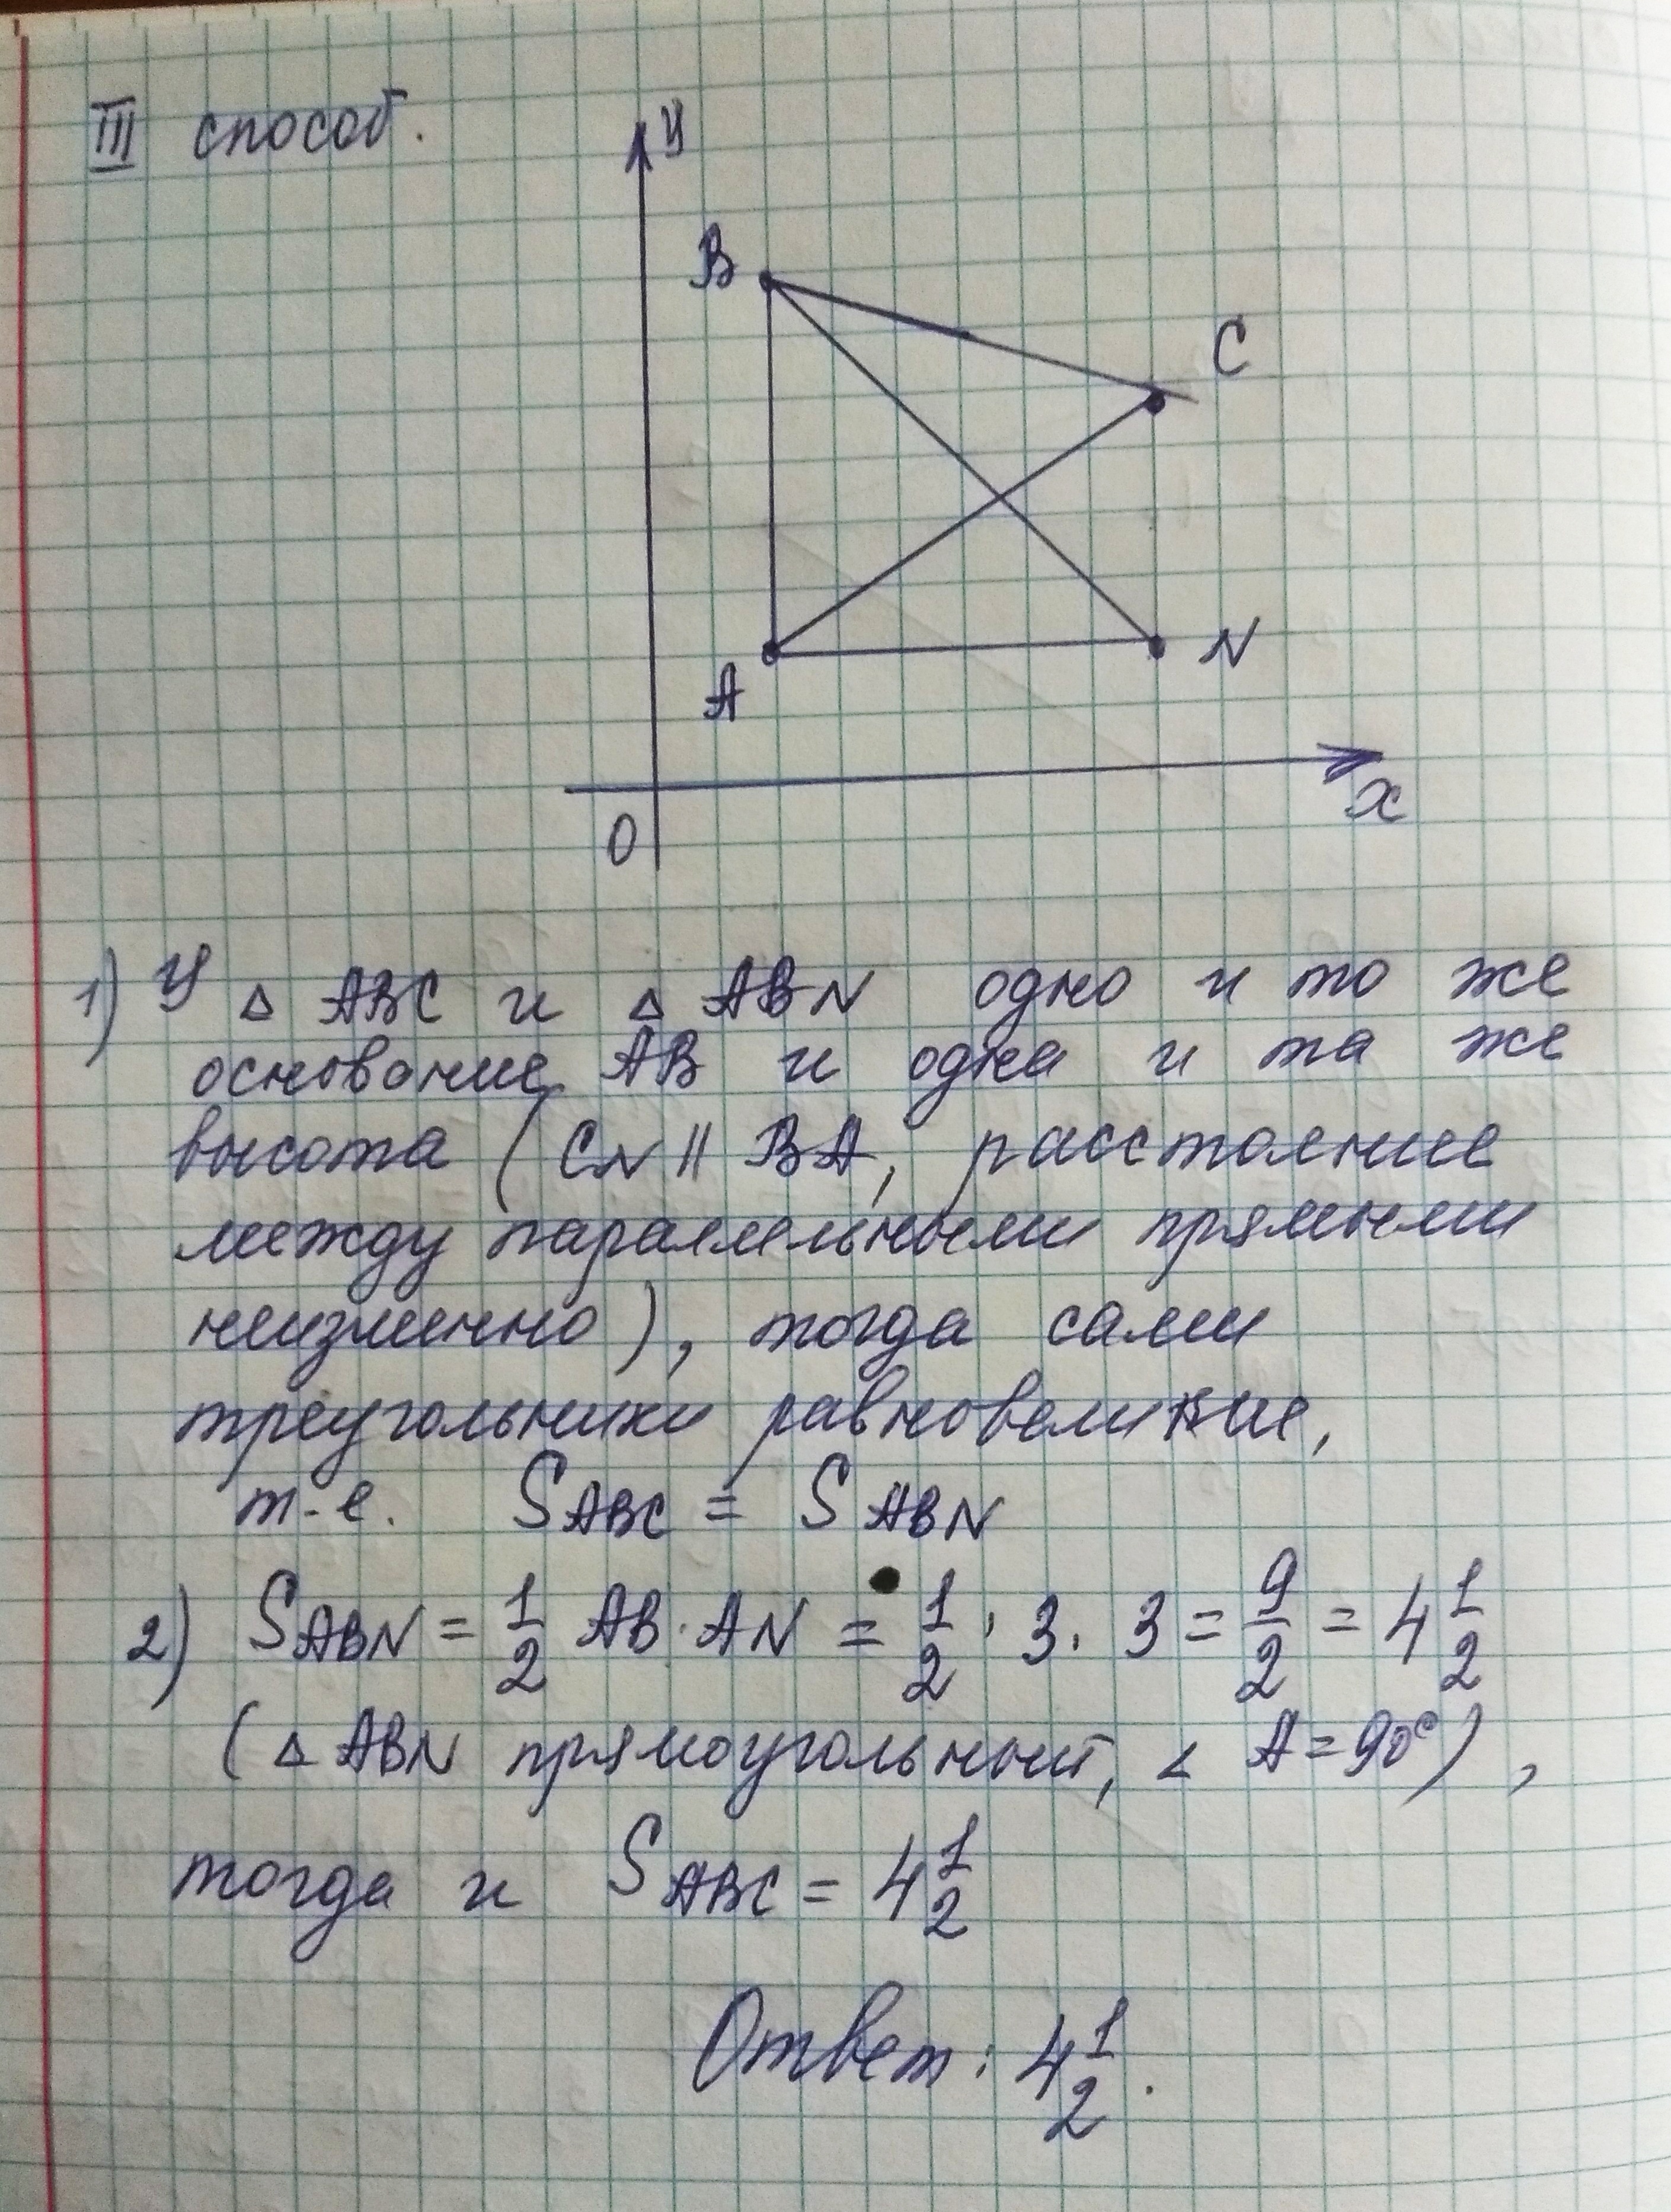 III способ.
у
B
C
N
A
x
0
1) У △ ABC и △ ABN одно и то же
основание AB и одна и та же
высота ( CN || BA, расстояние
между параллельными прямыми
неизменно ), тогда сами
треугольники равновеликие,
т.е. S ABC = S ABN
2) S ABN = 1/2 AB · AN = 1/2 · 3 · 3 = 9/2 = 4 1/2
( △ ABN прямоугольный, ∠ A = 90° ) ,
тогда и S ABC = 4 1/2
Ответ: 4 1/2.